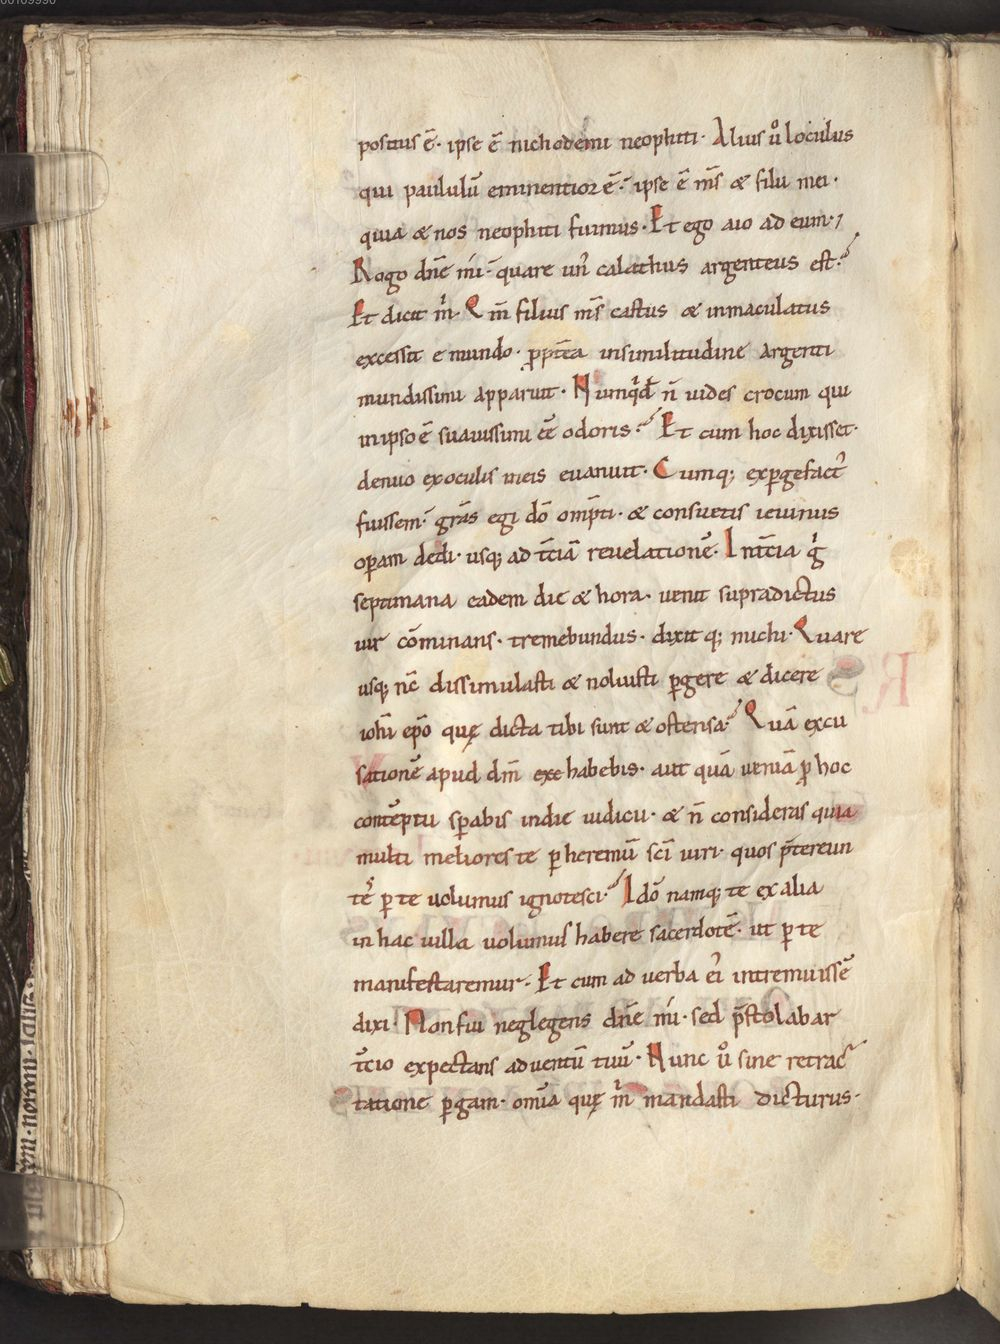 positus ē· ipse ē nichodemi neophiti· Alius ů loculus
qui paululū eminentior ē·́ ipse ē m̄s & filii mei·
quia & nos neophiti fuimus· Et ego aio ad eum·,
Rogo dn̄e mi·́ quare un̾ calathus argenteus est·́
Et dicit m̍· Qm̄ filius m̄s castus & inmaculatus
excessit e mundo· ꝓpt̄ea insimilitudine argenti
mundissimi apparuit· Numqͥd n̄ uides crocum qui
inipso ē suauissimi eē odoris·́ Et cum hoc dixisset·
denuo exoculis meis euanuit· Cumq; exꝑgefact̾
fuissem·́ grās egi dō omp̄ti· & consuetis ieiuniis
oꝑam dedi· usq; ad t̄ciā reuelationē· Int̄cia gͥ
septimana eadem die & hora· uenit supradictus
uir cōminans· tremebundus· dixit q; michi· Quare
usq; nc̄ dissimulasti & noluisti ꝑgere & dicere
ioh̄i ep̄o quę dicta tibi sunt & ostensa·́ Quā excu
sationē apud dm̄ exe habebis· aut quā ueniā ꝓ hoc
contēptu sꝑabis indie iudicii· & n̄ consideras quia
multi meliores te ꝑ heremū sc̄i uiri· quos p̄tereun
tēs ꝑ te uolumus ignotesci·́ Idō namq; te ex alia
in hac uilla uolumus habere sacerdotē· ut ꝑ te
manifestaremur· Et cum ad uerba ei̾ intremuissē
dixi· Non fui neglegens dn̄e mi·́ sed p̄stolabar
t̄cio expectans aduentū tuū· Nunc ů sine retrac
tatione ꝑgam· om̄ia quę m̍ mandasti dicturus·